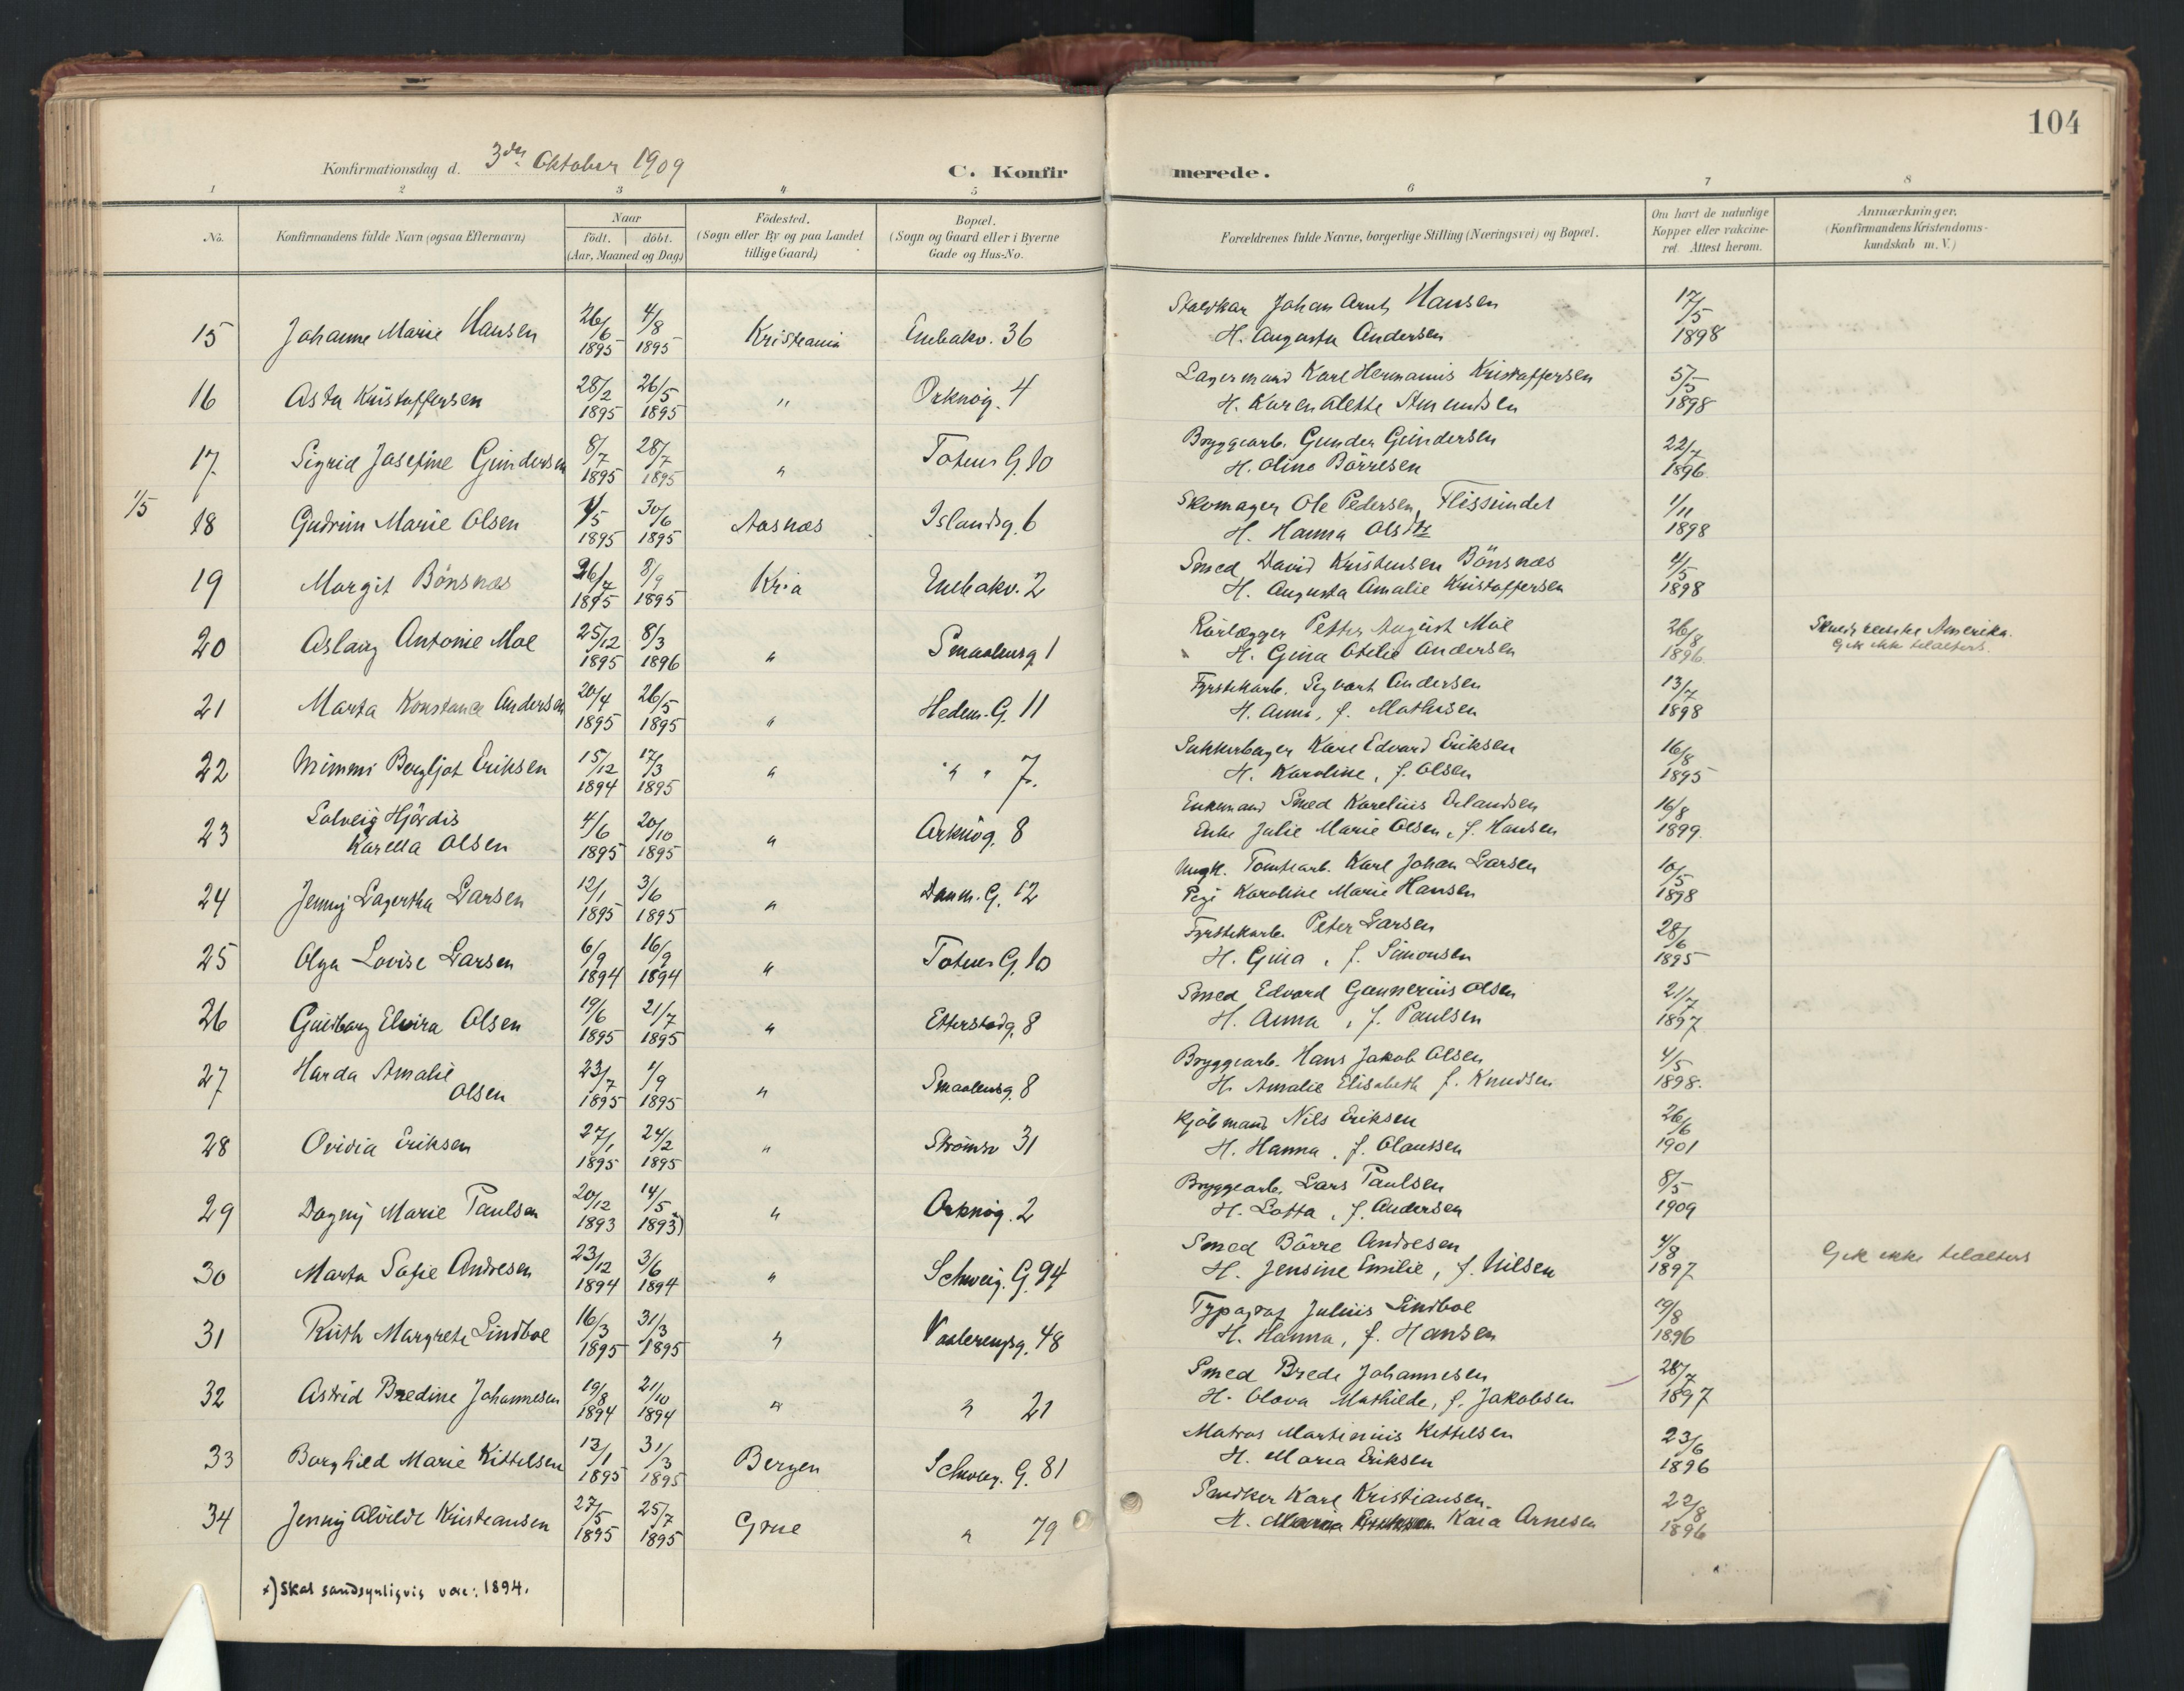 104
Konfirmationsdag d. 3die Oktober 1909
C. Konfirmerede.
1 2 3 4 5 6 7 8
No.
Konfirmandens fulde Navn (ogsaa Efternavn)
Naar
födt. döbt.
(Aar, Maaned og Dag)
Födested.
(Sogn eller By og paa Landet
tillige Gaard)
Bopæl.
(Sogn og Gaard eller i Byerne
Gade og Hus-No.
Forældrenes fulde Navne, borgerlige Stilling (Næringsvei) og Bopæl.
Om havt de naturlige
Kopper eller vakcine-
ret. Attest herom.
Anmærkninger.
(Konfirmandens Kristendoms-
kundskab m. V.)
15 Johanne Marie Hansen 26/6 1895 4/8 1895 Kristiania Enebakv. 36 Staldkar Johan Arnt Hansen 17/5 1898
H. Augusta Andersen
16 Asta Kristoffersen 28/2 1895 26/5 1895 " Orknög. 4 Lagermand Karl Hermanius Kristoffersen 5/5 1898
H. Karen Alette Amundsen
17 Sigrid Josefine Gundersen 8/7 1895 28/7 1895 " Totens G. 10 Bryggearb. Gunder Gundersen 22/7 1896
H. Oline Börresen
1/5
18 Gudrun Marie Olsen 1/5 1895 30/6 1895 Aasnæs Islandsg. 6 Skomager Ole Pedersen, Flissundet 1/11 1898
H. Hanna Olsdtr
19 Margit Bönsnæs 26/7 1895 8/9 1895 Kr.a Enebakv. 2 Smed David Kristensen Bönsnæs 4/5 1898
H. Augusta Amalie Kristoffersen
20 Aslaug Antonie Moe 25/12 1895 8/3 1896 " Smaalensg. 1 Rörlægger Petter August Moe 26/8 1896 Amerika.
H. Gina Otelie Andersen Gik ikke tilalters.
21 Marta Konstance Andersen 20/4 1895 26/5 1895 " Hedem. G. 11 Fyrstikarb. Sigvart Andersen 13/7 1898
H. Anna, f. Mathisen
22 Mimmi Bergljot Eriksen 15/12 1894 17/3 1895 " " " 7. Sukkerbager Karl Edvard Eriksen 16/8 1895
H. Karoline, f. Olsen
23 Solveig Hjördis
Karella Olsen 4/6 1895 20/10 1895 " Orknög. 8 Enkemand Smed Karelius Erlandsen 16/8 1899.
Enke Julie Marie Olsen, f. Hansen
24 Jenny Lagertha Larsen 12/1 1895 3/6 1895 " Danm. G. 12 Ungk. Tomtearb. Karl Johan Larsen 10/5 1898
Pige Karoline Marie Hansen
25 Olga Lovise Larsen 6/9 1894 16/9 1894 " Totens G. 10 Fyrstikarb. Peter Larsen 28/6 1895
H. Gina, f. Simonsen
26 Guldborg Elvira Olsen 19/6 1895 21/7 1895 " Etterstadg. 8 Smed Edvard Gunnerius Olsen 21/7 1897
H. Anna, f. Paulsen
27 Harda Amalie
Olsen 23/7 1895 1/9 1895 " Smaalensg. 8 Bryggearb. Hans Jakob Olsen 4/5 1898.
H. Amalie Elisabeth f. Knudsen
28 Ovidia Eriksen 27/1 1895 24/2 1895 " Strömsv 31 Kjöbmand Nils Eriksen 26/6 1901
H. Hanna, f. Olaussen
29 Dagny Marie Paulsen 20/12 1893 14/5 1893*) " Orknög. 2 Bryggearb. Lars Paulsen 8/5 1909
H. Lotta, f. Andersen
30 Marta Sofie Andresen 23/12 1894 3/6 1894 " Schweig. G. 94 Smed Börre Andresen 4/8 1897 Gik ikke tilalters
H. Jensine Emilie, f. Nilsen
31 Ruth Margrete Lindboe 16/3 1895 31/3 1895 " Vaalerengsg. 48 Typograf Julius Lindboe 19/8 1896
H. Hanna, f. Hansen
32 Astrid Bredine Johannesen 19/8 1894 21/10 1894 " " 21 Smed Brede Johannesen 28/7 1897
H. Olova Mathilde, f. Jakobsen
33 Borghild Marie Kittelsen 13/1 1895 31/3 1895 Bergen Schweig. G. 81 Matros Martinius Kittelsen 23/6 1896
H. Maria Eriksen
34 Jenny Alvilde Kristiansen 27/5 1895 25/7 1895 Grue " 79 Snedker Karl Kristiansen. 22/8 1896
H. Kaia Arnesen
*) Skal sandsynligvis være: 1894.